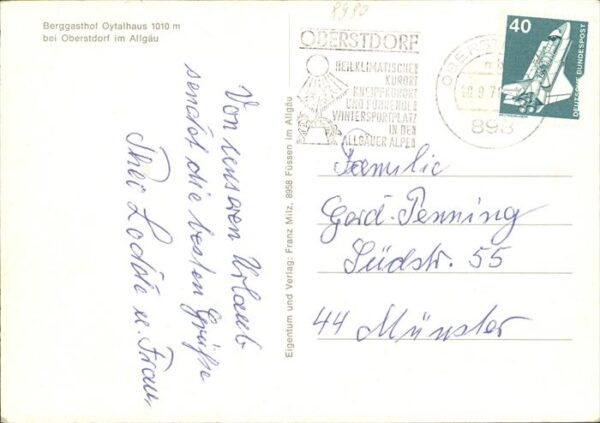 Berggasthof Oytalhaus 1010 m
bei Oberstdorf im Allgäu
8980
OBERSTDORF
HEILKLIMATISCHER
KURORT
KNEIPPKURORT
UND FÜHRENDER
WINTERSPORTPLATZ
IN DEN
ALLGÄUER ALPEN
40
DEUTSCHE BUNDESPOST
898
Von unseren Urlaub
sendet die besten Grüße
u. Frau
Eigentum und Verlag: Franz Milz, 8958 Füssen im Allgäu
Familie
Gerd. Penning
Südstr. 55
44 Münster